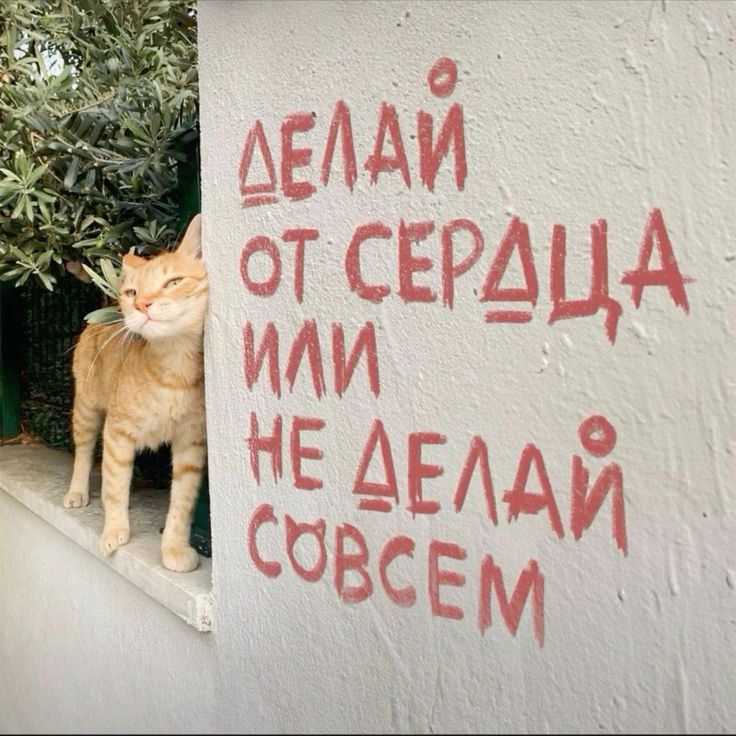 ДЕЛАЙ
ОТ СЕРДЦА
ИЛИ
НЕ ДЕЛАЙ
СОВСЕМ